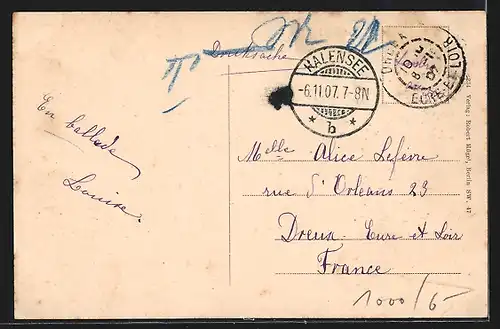 Drucksache
HALENSEE
-6.11.07. 7-8N
* b *
DREUX
EURE-ET-LOIR
En ballade
Louise.
Melle Alice Lefèvre
rue d'Orleans 23
Dreux. Eure et Loir
France
1000/6-
Verlag: Robert Rügel, Berlin SW. 47